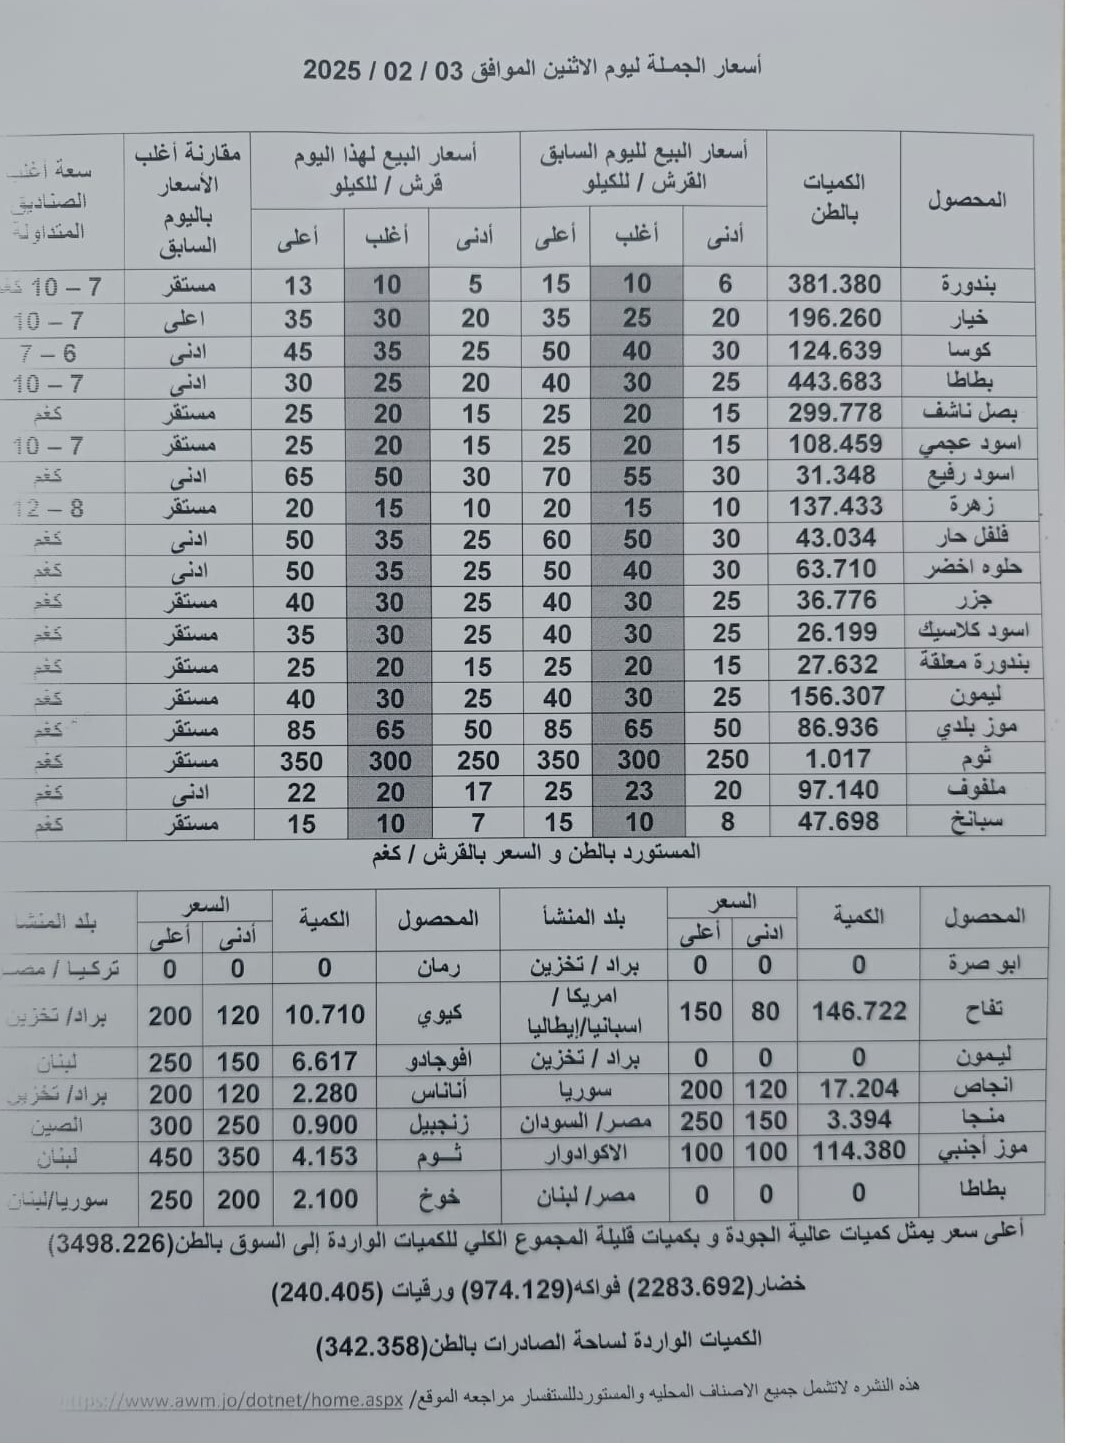 أسعار الجملة ليوم الاثنين الموافق 03 / 02 / 2025
المحصول الكميات بالطن أسعار البيع لليوم السابق القرش / للكيلو أسعار البيع لهذا اليوم قرش / للكيلو مقارنة أغلب الأسعار باليوم السابق سعة أغلب الصناديق المتداولة
أدنى أغلب أعلى أدنى أغلب أعلى
بندورة 381.380 6 10 15 5 10 13 مستقر 7 – 10 كغم
خيار 196.260 20 25 35 20 30 35 اعلى 7 – 10
كوسا 124.639 30 40 50 25 35 45 ادنى 6 – 7
بطاطا 443.683 25 30 40 20 25 30 ادنى 7 – 10
بصل ناشف 299.778 15 20 25 15 20 25 مستقر كغم
اسود عجمي 108.459 15 20 25 15 20 25 مستقر 7 – 10
اسود رفيع 31.348 30 55 70 30 50 65 ادنى كغم
زهرة 137.433 10 15 20 10 15 20 مستقر 8 – 12
فلفل حار 43.034 30 50 60 25 35 50 ادنى كغم
حلوه اخضر 63.710 30 40 50 25 35 50 ادنى كغم
جزر 36.776 25 30 40 25 30 40 مستقر كغم
اسود كلاسيك 26.199 25 30 40 25 30 35 مستقر كغم
بندورة معلقة 27.632 15 20 25 15 20 25 مستقر كغم
ليمون 156.307 25 30 40 25 30 40 مستقر كغم
موز بلدي 86.936 50 65 85 50 65 85 مستقر كغم
ثوم 1.017 250 300 350 250 300 350 مستقر كغم
ملفوف 97.140 20 23 25 17 20 22 ادنى كغم
سبانخ 47.698 8 10 15 7 10 15 مستقر كغم
المستورد بالطن و السعر بالقرش / كغم
المحصول الكمية السعر بلد المنشأ المحصول الكمية السعر بلد المنشا
ادنى أعلى أدنى أعلى
ابو صرة 0 0 0 براد / تخزين رمان 0 0 0 تركيا / مصر
تفاح 146.722 80 150 امريكا / اسبانيا/إيطاليا كيوي 10.710 120 200 براد/ تخزين
ليمون 0 0 0 براد / تخزين افوجادو 6.617 150 250 لبنان
انجاص 17.204 120 200 سوريا أناناس 2.280 120 200 براد/ تخزين
منجا 3.394 150 250 مصر/ السودان زنجبيل 0.900 250 300 الصين
موز أجنبي 114.380 100 100 الاكوادوار ثــوم 4.153 350 450 لبنان
بطاطا 0 0 0 مصر/ لبنان خوخ 2.100 200 250 سوريا/لبنان
أعلى سعر يمثل كميات عالية الجودة و بكميات قليلة المجموع الكلي للكميات الواردة إلى السوق بالطن(3498.226)
خضار(2283.692) فواكه(974.129) ورقيات (240.405)
الكميات الواردة لساحة الصادرات بالطن(342.358)
هذه النشره لاتشمل جميع الاصناف المحليه والمستوردللستفسار مراجعه الموقع/ https://www.awm.jo/dotnet/home.aspx